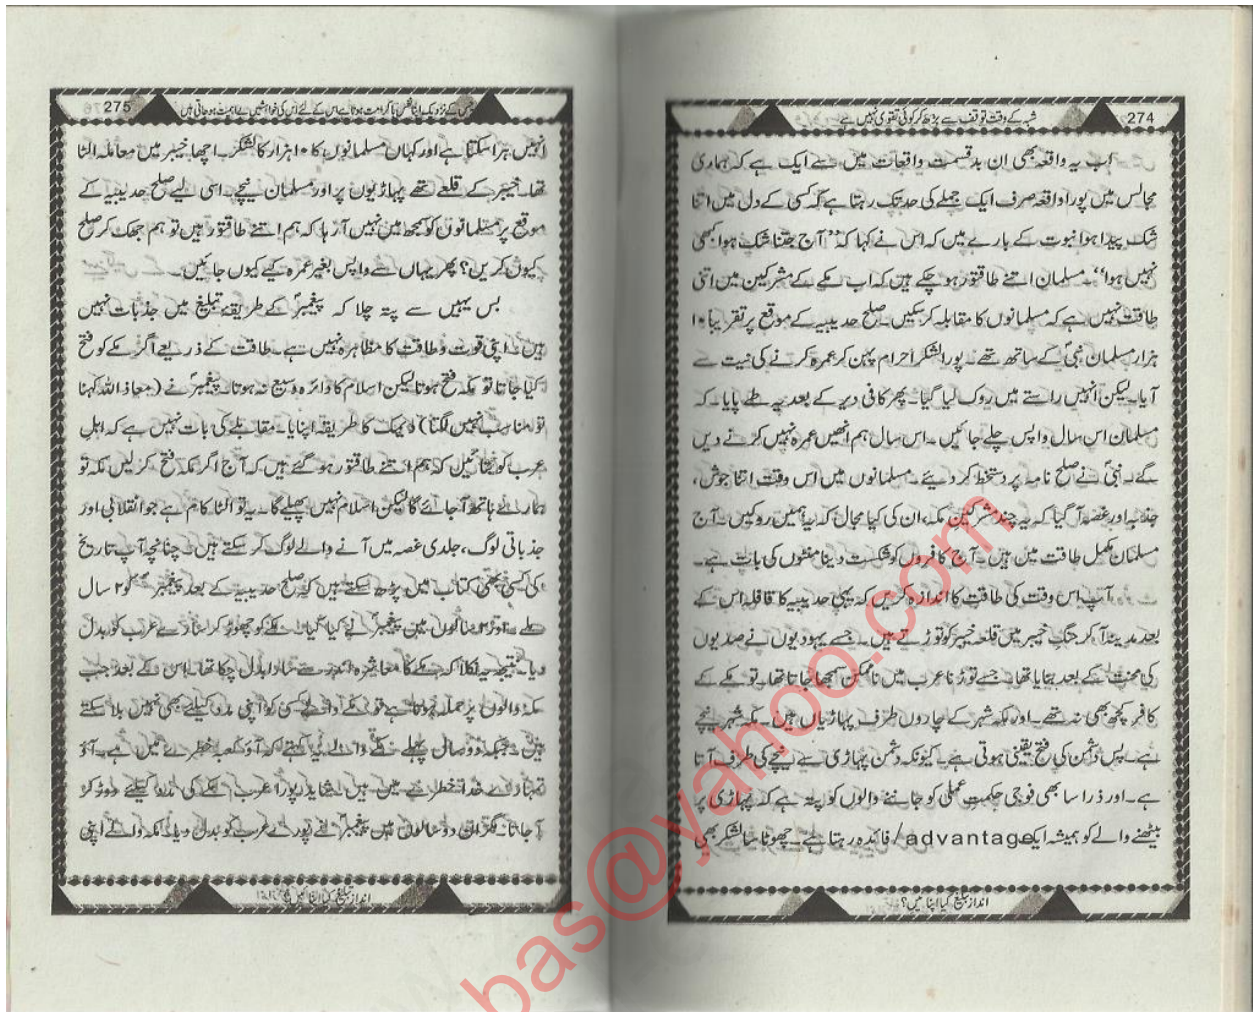 274
شبہ کے وقت توقف سے بڑھ کر کوئی تقویٰ نہیں ہے
اب یہ واقعہ بھی ان بدقسمت واقعات میں سے ایک ہے کہ ہماری
مجالس میں پورا واقعہ صرف ایک جملے کی حد تک رہتا ہے کہ کسی کے دل میں اتنا
شک پیدا ہوا نبوت کے بارے میں کہ اس نے کہا کہ ”آج جتنا شک ہوا کبھی
نہیں ہوا“۔ مسلمان اتنے طاقتور ہو چکے ہیں کہ اب مکے کے مشرکین میں اتنی
طاقت نہیں ہے کہ مسلمانوں کا مقابلہ کر سکیں۔ صلح حدیبیہ کے موقع پر تقریباً ۱۰
ہزار مسلمان نبیؐ کے ساتھ تھے۔ پورا لشکر احرام پہن کر عمرہ کرنے کی نیت سے
آیا۔ لیکن انہیں راستے میں روک لیا گیا۔ پھر کافی دیر کے بعد یہ طے پایا۔ کہ
مسلمان اس سال واپس چلے جائیں۔ اس سال ہم انھیں عمرہ نہیں کرنے دیں
گے۔ نبیؐ نے صلح نامہ پر دستخط کر دیئے۔ مسلمانوں میں اس وقت اتنا جوش،
جذبہ اور غصہ آ گیا کہ یہ چند مشرکین مکہ، ان کی کیا مجال کہ یہ ہمیں روکیں۔ آج
مسلمان مکمل طاقت میں ہیں۔ آج کافروں کو شکست دینا منٹوں کی بات ہے۔
آپ اس وقت کی طاقت کا اندازہ کریں کہ یہی حدیبیہ کا قافلہ اس کے
بعد مدینہ آ کر جنگ خیبر میں قلعہ خیبر کو توڑتے ہیں۔ جسے یہودیوں نے صدیوں
کی محنت کے بعد بنایا تھا۔ جسے توڑنا عرب میں ناممکن سمجھا جاتا تھا۔ تو مکے کے
کافر کچھ بھی نہ تھے۔ اور مکہ شہر کے چاروں طرف پہاڑیاں ہیں۔ مکہ شہر نیچے
ہے۔ پس دشمن کی فتح یقینی ہوتی ہے۔ کیونکہ دشمن پہاڑی سے نیچے کی طرف آتا
ہے۔ اور ذرا سا بھی فوجی حکمت عملی کو جاننے والوں کو پتہ ہے کہ پہاڑی پر
بیٹھنے والے کو ہمیشہ ایک advantage/ فائدہ رہتا ہے۔ چھوٹا سا لشکر بھی
انداز تبلیغ کیا اپنائیں؟
275
جس کے نزدیک اپنا نفس باکرامت ہوتا ہے اس کے لئے اس کی خواہشیں بے اہمیت ہو جاتی ہیں
انہیں ہرا سکتا ہے اور کہاں مسلمانوں کا ۱۰ ہزار کا لشکر۔ اچھا خیبر میں معاملہ الٹا
تھا۔ خیبر کے قلعے تھے پہاڑیوں پر اور مسلمان نیچے۔ اسی لیے صلح حدیبیہ کے
موقع پر مسلمانوں کو سمجھ میں نہیں آ رہا کہ ہم اتنے طاقتور ہیں تو ہم جھک کر صلح
کیوں کریں؟ پھر یہاں سے واپس بغیر عمرہ کیے کیوں جائیں۔
بس یہیں سے پتہ چلا کہ پیغمبرؐ کے طریقۂ تبلیغ میں جذبات نہیں
ہیں۔ اپنی قوت و طاقت کا مظاہرہ نہیں ہے۔ طاقت کے ذریعے اگر مکے کو فتح
کیا جاتا تو مکہ فتح ہوتا لیکن اسلام کا دائرہ وسیع نہ ہوتا۔ پیغمبرؐ نے (معاذ اللہ کہنا
تو مناسب نہیں لگتا) دیمک کا طریقہ اپنایا۔ مقابلے کی بات نہیں ہے کہ اہل
عرب کو بتائیں کہ ہم اتنے طاقتور ہو گئے ہیں کہ آج اگر مکہ فتح کر لیں مکہ تو
ہمارے ہاتھ آ جائے گا لیکن اسلام نہیں پھیلے گا۔ یہ تو الٹا کام ہے جو انقلابی اور
جذباتی لوگ، جلدی غصہ میں آنے والے لوگ کر سکتے ہیں۔ چنانچہ آپ تاریخ
کی کسی بھی کتاب میں پڑھ سکتے ہیں کہ صلح حدیبیہ کے بعد پیغمبرؐ کو ۲ سال
ملے۔ اور ۲ سالوں میں پیغمبرؐ نے کیا کیا؟ مکے کو چھوڑ کر سارے عرب کو بدل
دیا۔ نتیجہ یہ نکلا کہ مکے کا معاشرہ اندر سے سارا بدل چکا تھا۔ اس کے بعد جب
مکہ والوں پر حملہ ہوتا ہے تو مکے والے کسی کو اپنی مدد کیلئے بھی نہیں بلا سکتے
ہیں۔ جبکہ دو سال پہلے مکے والے یہ کہتے کہ آؤ کعبہ خطرے میں ہے۔ آؤ
تمہارے خدا خطرے میں ہیں۔ شاید پورا عرب مکے کی مدد کیلئے دوڑ کر
آ جاتا۔ مگر ان دو سالوں میں پیغمبرؐ نے پورے عرب کو بدل دیا۔ مکہ والے اپنی
انداز تبلیغ کیا اپنائیں؟
bas@yahoo.com